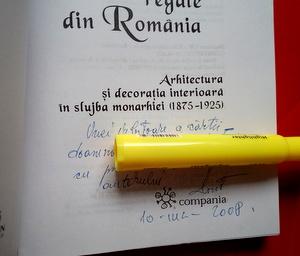 regale
din România
Arhitectura
şi decoraţia interioară
în slujba monarhiei (1875-1925)
Unei iubitoare a cărţii
doamn
cu
autorului
compania
2008